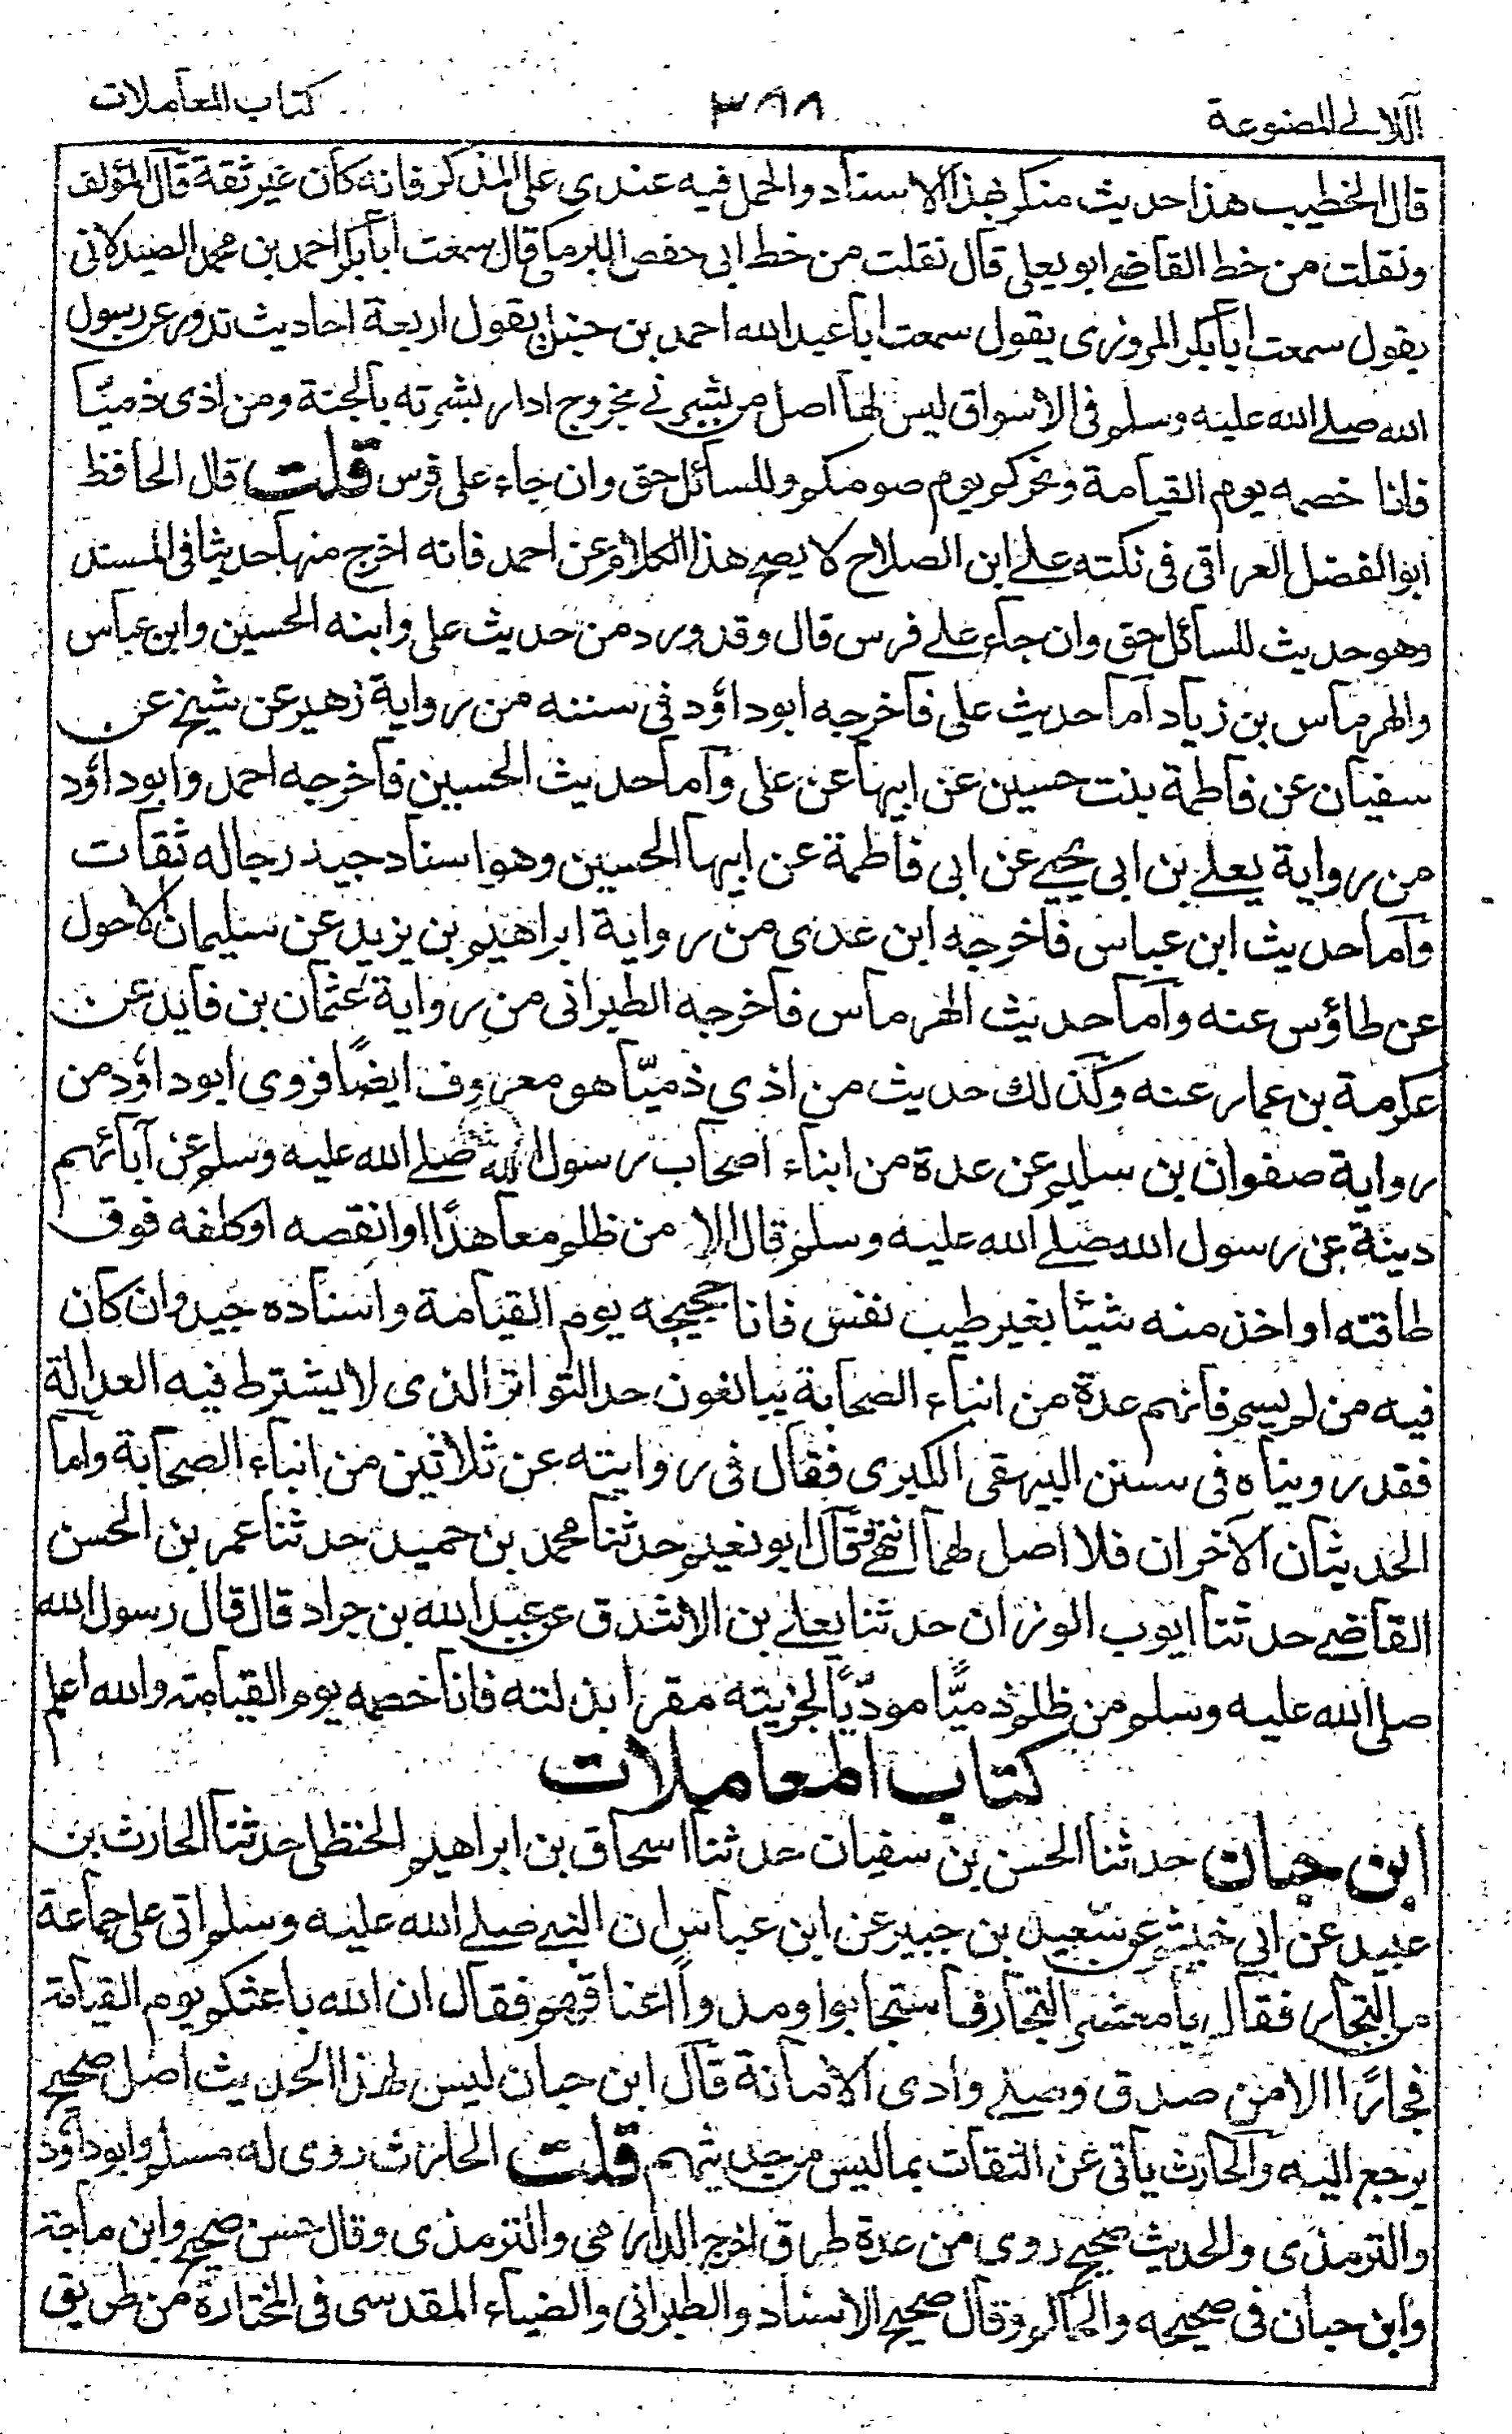 اللآلي المصنوعة
٣٨٨
كتاب المعاملات
قال الخطيب هذا حديث منكر بهذا الاسناد والحمل فيه عندي على المذكر فانه كان غير ثقة قال المؤلف
ونقلت من خط القاضي ابو يعلى قال نقلت من خط ابي حفص البرمكي قال سمعت ابابكر احمد بن محمد الصيدلاني
يقول سمعت ابابكر المروزى يقول سمعت ابا عبد الله احمد بن حنبل يقول اربعة احاديث تدور عن رسول
الله صلے الله عليه وسلم فى الاسواق ليس لها اصل من بشرني بخروج اذار بشرته بالجنة ومن اذى ذميا
فانا خصمه يوم القيامة ونحركم يوم صومكم وللسائل حق وان جاء على فرس قلت قال الحافظ
ابو الفضل العراقى فى نكته علے ابن الصلاح لا يصح هذا الكلام عن احمد فانه اخرج منها حديثا فى المسند
وهو حديث للسائل حق وان جاء علے فرس قال وقد ورد من حديث على وابنه الحسين وابن عباس
والهرماس بن زياد اما حديث على فاخرجه ابو داؤد فى سننه من رواية زهير عن شيخ عن
سفيان عن فاطمة بنت حسين عن ابيها عن على واما حديث الحسين فاخرجه احمد وابو داؤد
من رواية يعلے بن ابى يحيے عن ابى فاطمة عن ابيها الحسين وهو اسناد جيد رجاله ثقات
واما حديث ابن عباس فاخرجه ابن عدى من رواية ابراهيم بن يزيد عن سليمان الاحول
عن طاؤس عنه واما حديث الهرماس فاخرجه الطبرانى من رواية عثمان بن فايد عن
عكرمة بن عمار عنه وكذلك حديث من اذى ذميّا هو معروف ايضًا فروى ابو داؤد من
رواية صفوان بن سليم عن عدة من ابناء اصحاب رسول الله صلے الله عليه وسلم عن آبائهم
دينة عن رسول الله صلے الله عليه وسلم قال الا من ظلم معاهدًا او انقصه او كلفه فوق
طاقته او اخذ منه شيئا بغير طيب نفس فانا حجيجه يوم القيامة واسناده جيد وان كان
فيه من لم يسم فانهم عدة من ابناء الصحابة يبالغون حد التواتر الذى لا يشترط فيه العدالة
فقد رويناه فى سنن البيهقى الكبرى فقال فى روايته عن ثلاثين من ابناء الصحابة واما
الحديثان الآخران فلا اصل لهما انتهى فقال ابو نعيم حدثنا محمد بن حميد حدثنا عمر بن الحسن
القاضے حدثنا ايوب الوزان حدثنا يعلے بن الاشدق عن عبد الله بن جراد قال قال رسول الله
صلى الله عليه وسلم من ظلم ذميًّا مودّيًا لجزيته مقرا بذلته فانا خصمه يوم القيامة والله اعلم
كتاب المعاملات
ابن حبان حدثنا الحسن بن سفيان حدثنا اسحاق بن ابراهيم الحنظلى حدثنا الحارث بن
عبيد عن ابى خيثم عن سعيد بن جبير عن ابن عباس ان النبے صلے الله عليه وسلم اتى على جماعة
من التجار فقال يا معشر التجار فاستجابوا ومدوا اعناقهم فقال ان الله باعثكم يوم القيامة
فجارًا الا من صدق وصلے وادى الامانة قال ابن حبان ليس لهذا الحديث اصل صحيح
يرجع اليه والحارث ياتى عن الثقات بما ليس من حديثهم قلت الحارث روى له مسلم وابو داؤد
والترمذى والحديث صحيح روى من عدة طرق اخرج الدارمي والترمذى وقال حسن صحيح وابن ماجة
وابن حبان فى صحيحه والحاكم وقال صحيح الاسناد والطبرانى والضياء المقدسى فى المختارة من طريق